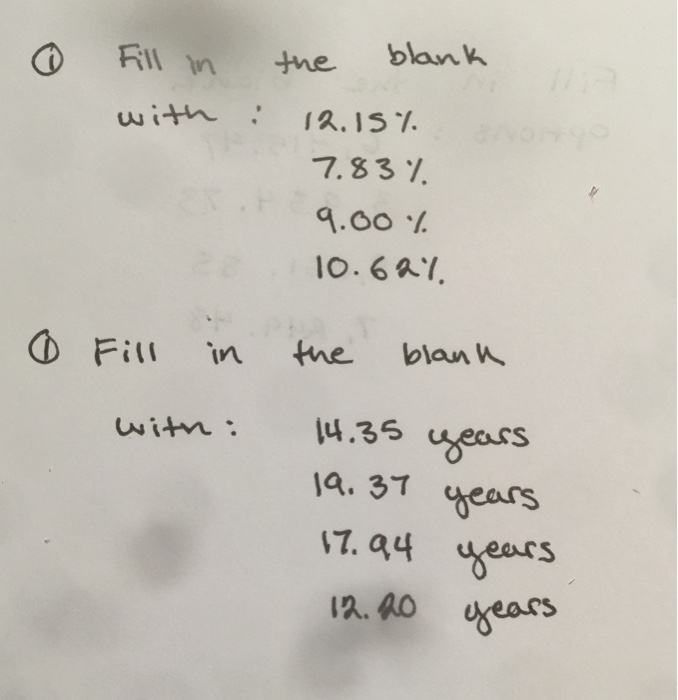 ① Fill in the blank
with : 12.15%
7.83%
9.00%
10.62%
① Fill in the blank
with : 14.35 years
19.37 years
17.94 years
12.20 years